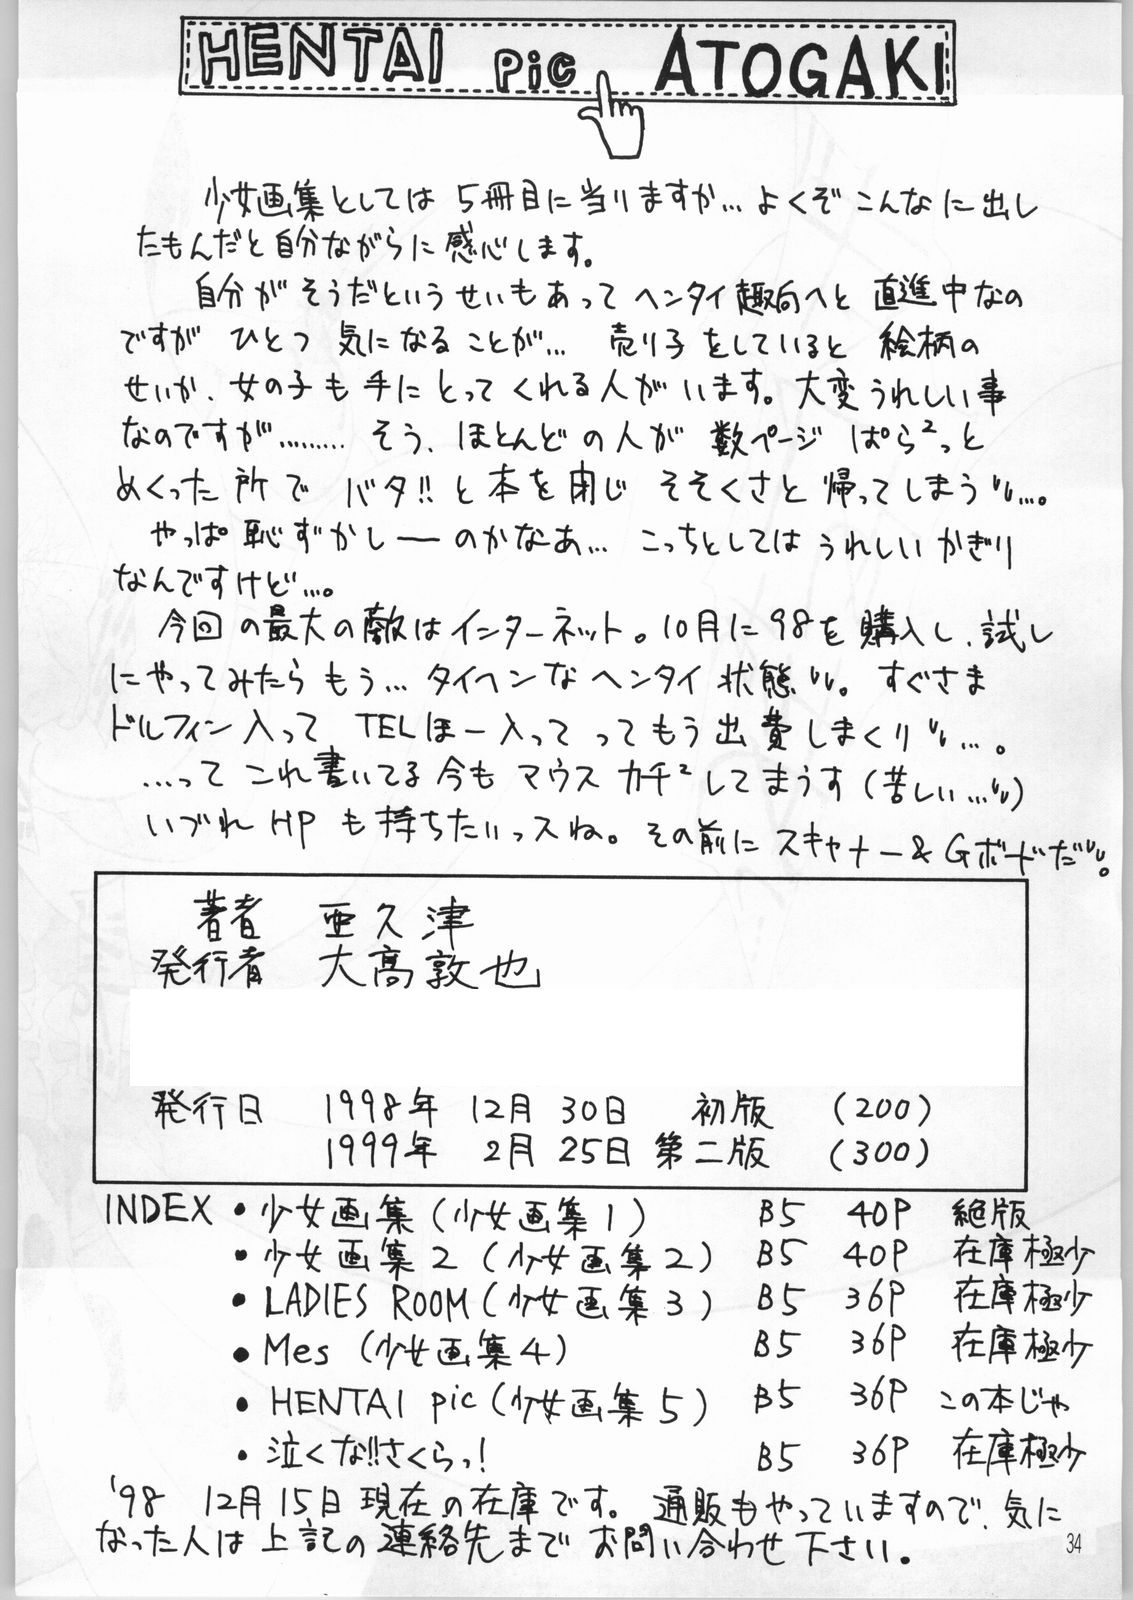 HENTAI PiC ATOGAKI
少女画集としては5冊目に当りますが…よくぞこんなに出し
たもんだと自分ながらに感心します。
自分がそうだというせいもあってヘンタイ趣向へと直進中なの
ですが ひとつ気になることが… 売り子をしていると絵柄の
せいか、女の子も手にとってくれる人がいます。大変うれしい事
なのですが……… そう、ほとんどの人が数ページぱら²っと
めくった所でバタ!!と本を閉じそそくさと帰ってしまう…。
やっぱ恥ずかしーのかなあ… こっちとしてはうれしいかぎり
なんですけど…。
今回の最大の敵はインターネット。10月に98を購入し、試し
にやってみたらもう…タイヘンなヘンタイ状態。すぐさま
ドルフィン入って TELほー入ってってもう出費しまくり…。
…ってこれ書いてる今もマウスカチ²してまうす(苦しい…)
いづれHPも持ちたいっスね。その前にスキャナー&Gボードだ。
著者 亜久津
発行者 大高敦也
発行日 1998年 12月 30日 初版 (200)
1999年 2月 25日 第二版 (300)
INDEX ・少女画集(少女画集1) B5 40P 絶版
・少女画集2(少女画集2) B5 40P 在庫極少
・LADIES ROOM(少女画集3) B5 36P 在庫極少
・Mes(少女画集4) B5 36P 在庫極少
・HENTAI pic(少女画集5) B5 36P この本じゃ
・泣くな!!さくらっ! B5 36P 在庫極少
'98 12月15日現在の在庫です。通販もやっていますので、気に
なった人は上記の連絡先までお問い合わせ下さい。
34